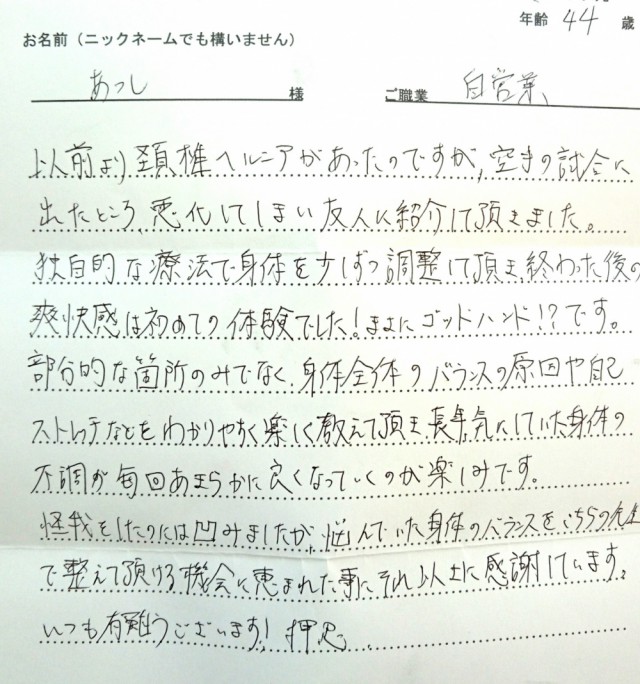 年齢 44 歳
お名前（ニックネームでも構いません）
あつし 様 ご職業 自営業
以前より頚椎ヘルニアがあったのですが、空手の試合に
出たところ、悪化してしまい友人に紹介して頂きました。
独自的な療法で身体を少しずつ調整して頂き、終わった後の
爽快感は初めての体験でした！まさにゴッドハンド!?です。
部分的な箇所のみでなく、身体全体のバランスの原因や自己
ストレッチなどをわかりやすく楽しく教えて頂き、長年気にしていた身体の
不調が毎回あきらかに良くなっていくのが楽しみです。
怪我をしたのには凹みましたが、悩んでいた身体のバランスをこちらの先生
で整えて頂ける機会に恵まれた事にそれ以上に感謝しています。
いつも有難うございます！押忍